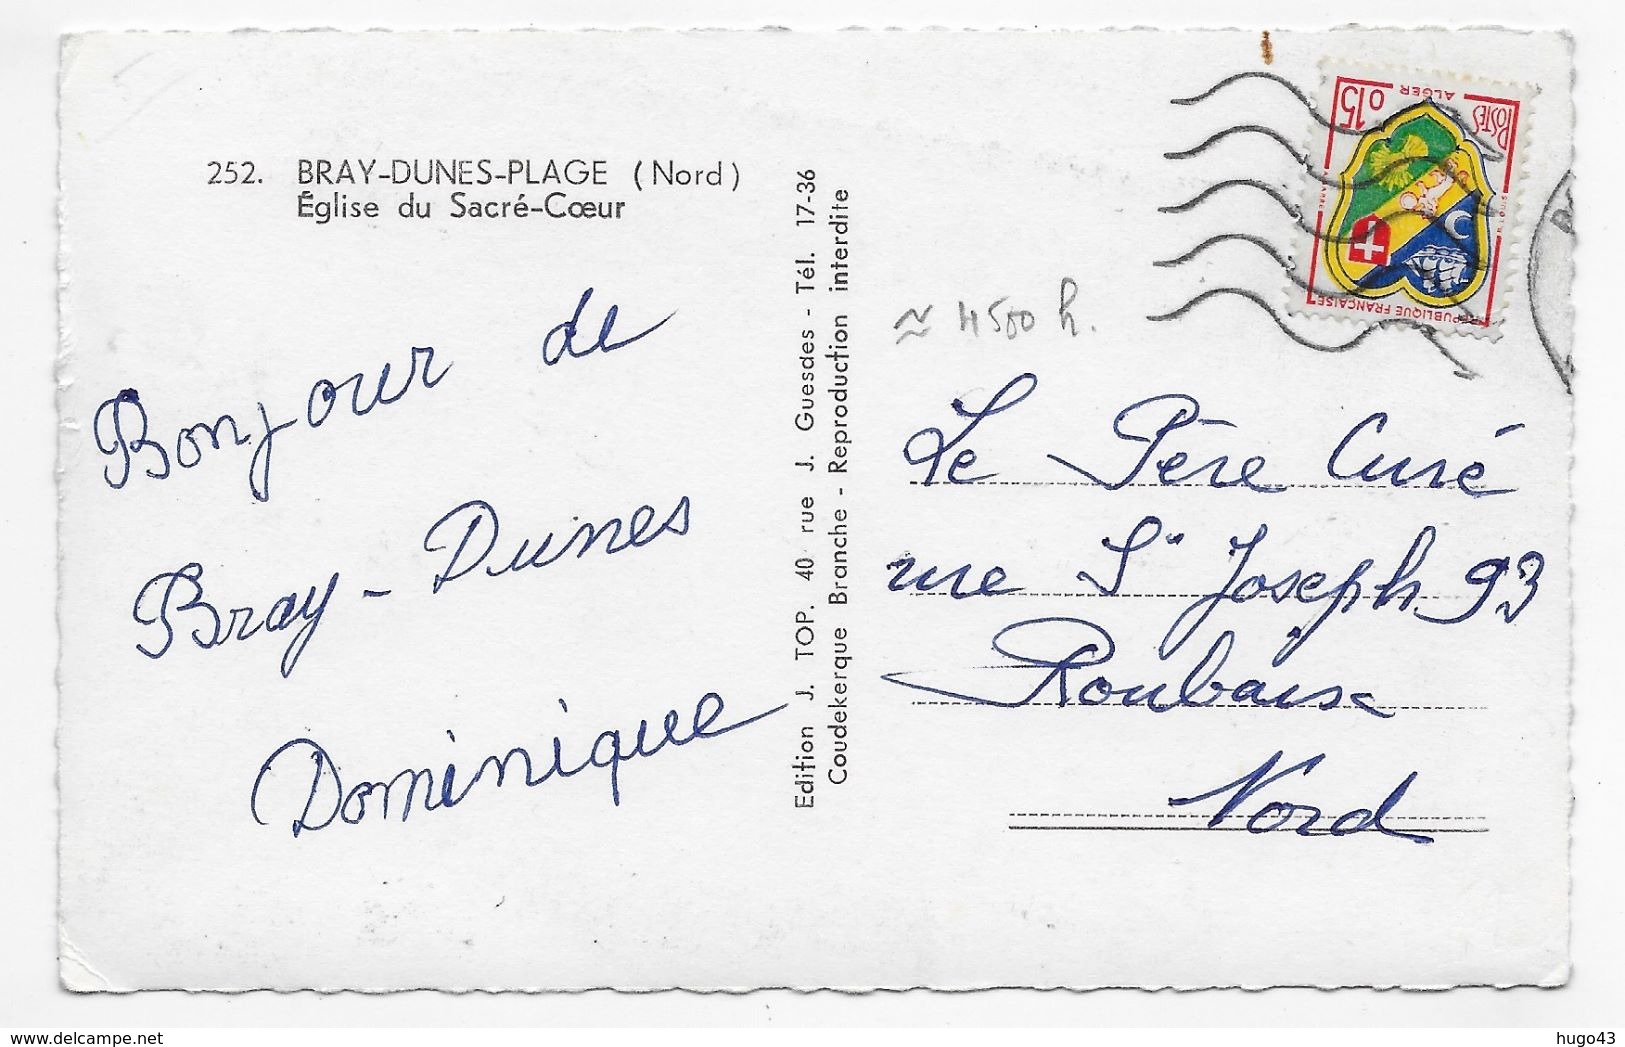 252. BRAY-DUNES-PLAGE (Nord)
Église du Sacré-Cœur
Bonjour de
Bray-Dunes
Dominique
Edition J. TOP. 40 rue J. Guesdes - Tél. 17-36
Coudekerque Branche - Reproduction interdite
≈ 4500 h.
POSTES
0,15
ALGER
RÉPUBLIQUE FRANÇAISE
Le Père Curé
rue St Joseph 93
Roubaix
Nord
https://www.delcampe.net
hugo43